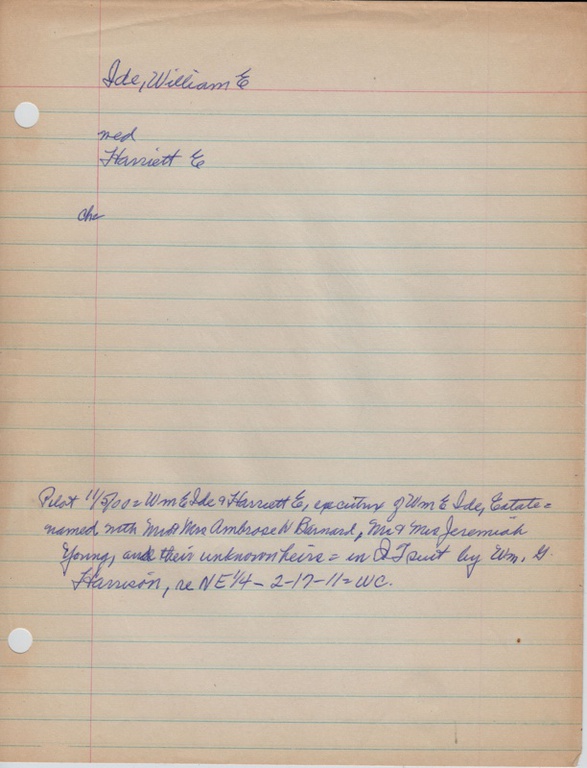 Ide, William E
med
Harriett E
chc
Pilot 11/5/00 = Wm E Ide & Harriett E, executrix of Wm E Ide, Estate =
named with Mr & Mrs Ambrose W Barnard, Mr & Mrs Jeremiah
Young, and their unknown heirs = in Q T suit by Wm. G.
Harrison, re NE 1/4 - 2-17-11 = WC.